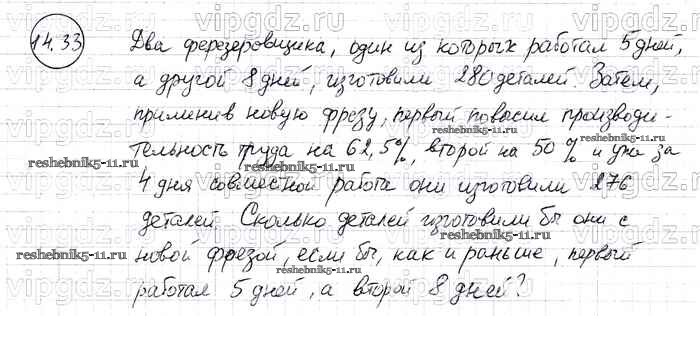 14.33
Два ферезеровщика, один из которых работал 5 дней,
а другой 8 дней, изготовили 280 деталей. Затем,
применив новую фрезу, первый повысил производи-
тельность труда на 62,5%, второй на 50% и уже за
4 дня совместной работы они изготовили 276
деталей. Сколько деталей изготовили бы они с
новой фрезой, если бы, как и раньше, первый
работал 5 дней, а второй 8 дней?
vipgdz.ru
reshebnik5-11.ru
reshebnik5-11.ru
reshebnik5-11.ru
reshebnik5-11.ru
reshebnik5-11.ru
reshebnik5-11.ru